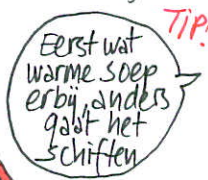 Tip!
Eerst wat
warme soep
erbij, anders
gaat het
schiften